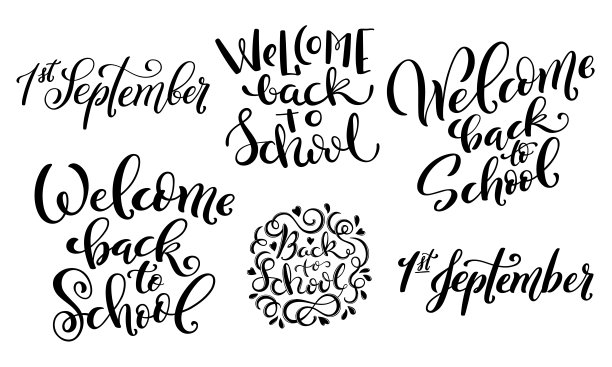 1st September
WELCOME
back
to
School
Welcome
back
to
School
Welcome
back
to
School
Back
to
School
1st September